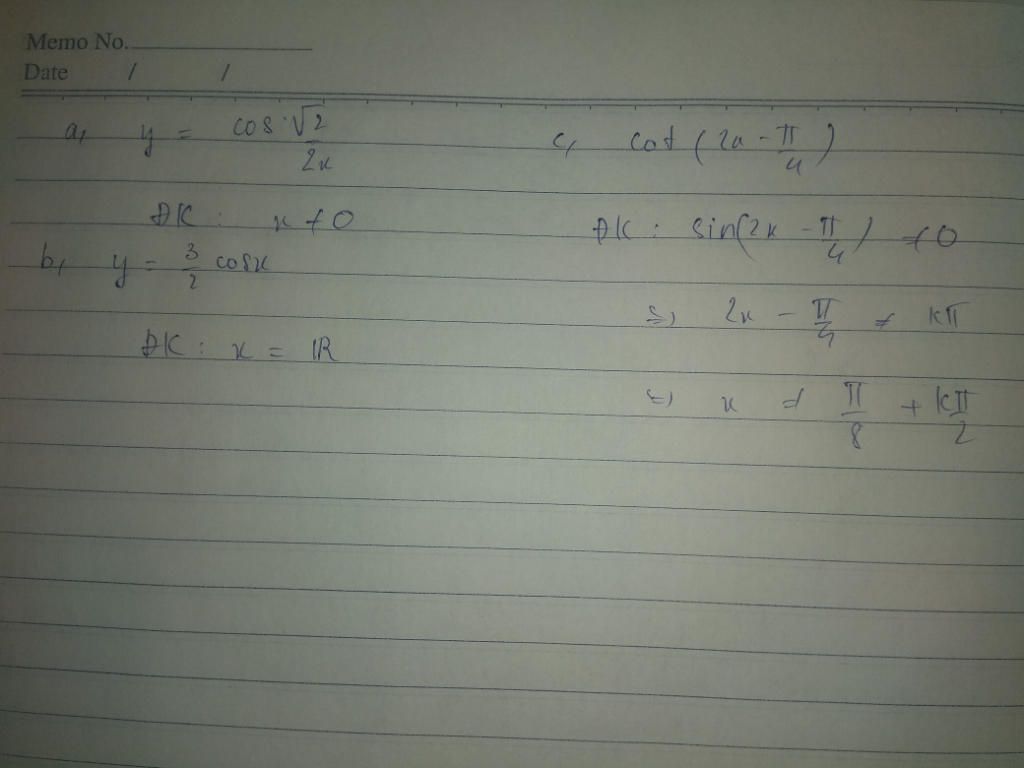 Memo No.
Date / /
a, y = cos √2 / 2x
ĐK : x ≠ 0
b, y = 3/2 cosx
ĐK : x = ℝ
c, cot (2x - π/4)
ĐK : sin(2x - π/4) ≠ 0
⇔ 2x - π/4 ≠ kπ
⇔ x ≠ π/8 + kπ/2